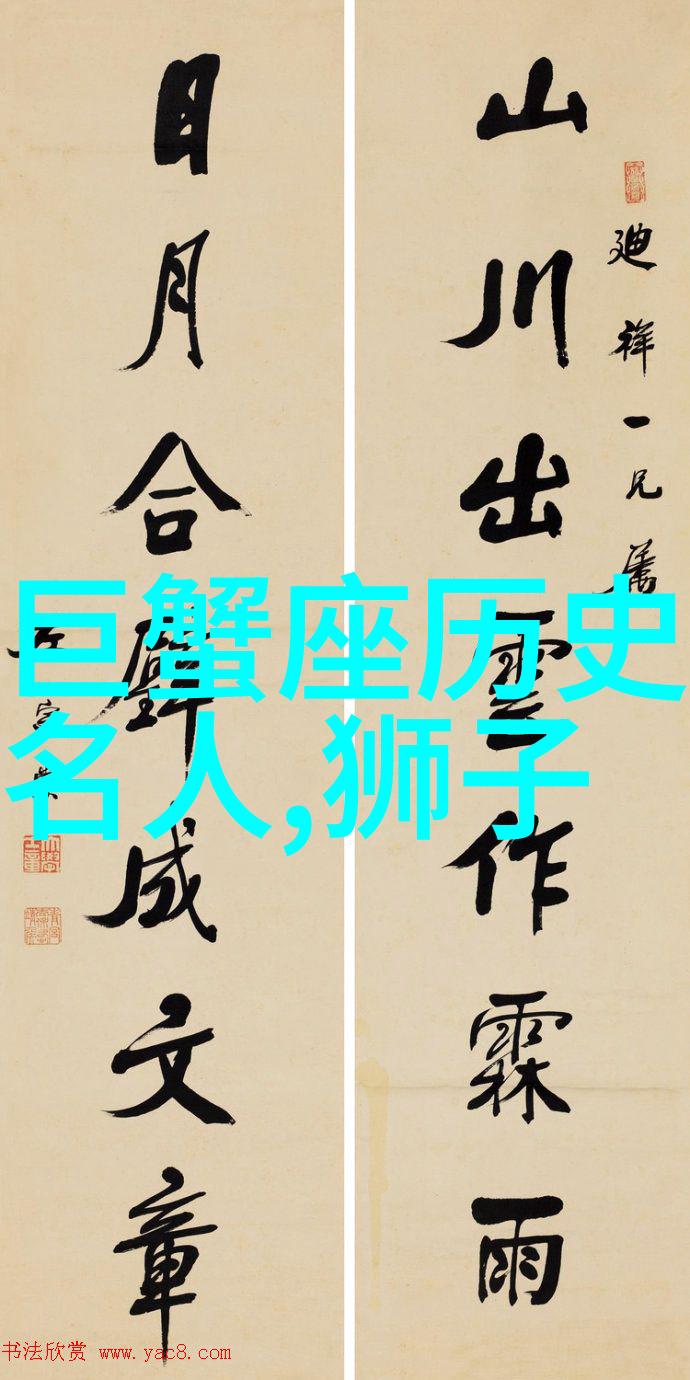 廸祥一兄属
山川出雲作霖雨
日月合璧成文章
巨蟹座历史
名人,狮子
书法欣赏 www.yac8.com